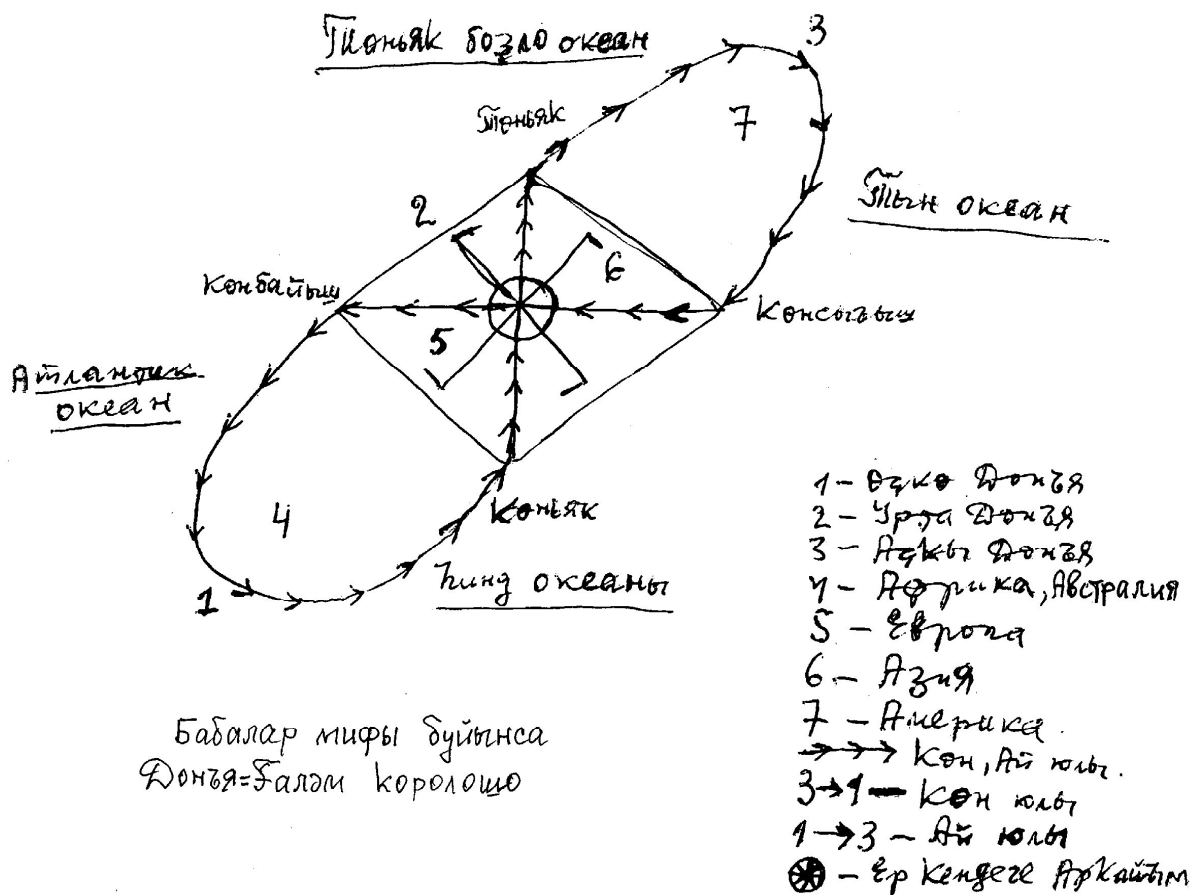 Төньяк бозло океан
3
Төньяк
7
2
Тын океан
6
Көнбайыш
Көнсығыш
5
Атлантик
океан
4
Көньяк
1
Һинд океаны
1 – Өҫкө Донъя
2 – Урта Донъя
3 – Аҫкы Донъя
4 – Африка, Австралия
5 – Европа
6 – Азия
7 – Америка
→→→→ Көн, Ай юлы.
3→1 – Көн юлы
1→3 – Ай юлы
– Ер Кендеге Аркайым
Бабалар мифы буйынса
Донъя=Ғаләм королошо